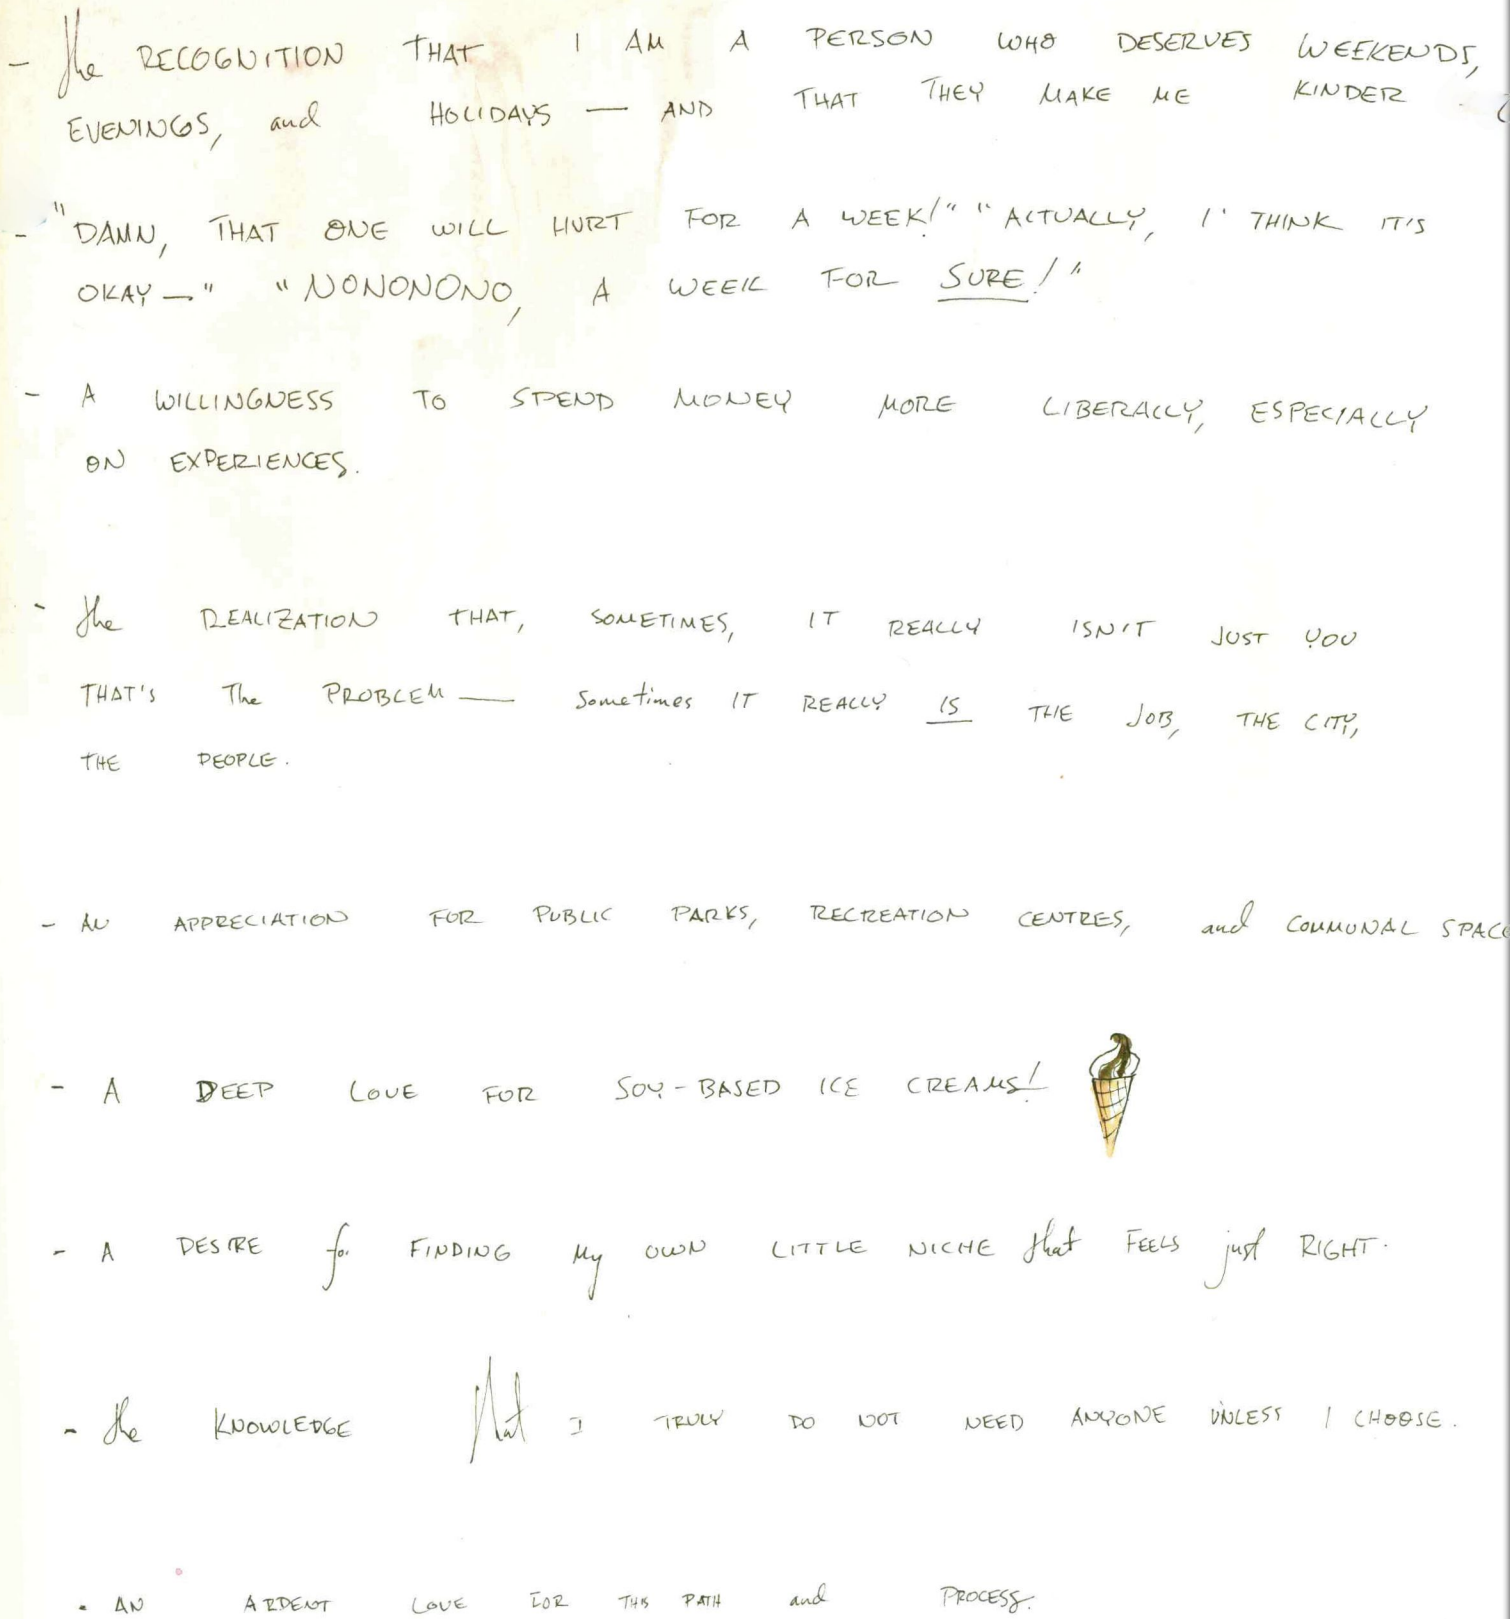 - the RECOGNITION THAT I AM A PERSON WHO DESERVES WEEKENDS,
EVENINGS, and HOLIDAYS — AND THAT THEY MAKE ME KINDER
- "DAMN, THAT ONE WILL HURT FOR A WEEK!" "ACTUALLY, I THINK IT'S
OKAY—" "NONONONO, A WEEK FOR SURE!"
- A WILLINGNESS TO SPEND MONEY MORE LIBERALLY, ESPECIALLY
ON EXPERIENCES.
- the REALIZATION THAT, SOMETIMES, IT REALLY ISN'T JUST YOU
THAT'S The PROBLEM — Sometimes IT REALLY IS THE JOB, THE CITY,
THE PEOPLE.
- AN APPRECIATION FOR PUBLIC PARKS, RECREATION CENTRES, and COMMUNAL SPAC
- A DEEP LOVE FOR SOY-BASED ICE CREAMS!
- A DESIRE for FINDING My OWN LITTLE NICHE that FEELS just RIGHT.
- the KNOWLEDGE that I TRULY DO NOT NEED ANYONE UNLESS I CHOOSE.
- AN ARDENT LOVE FOR THIS PATH and PROCESS.